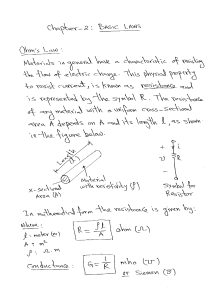 Chapter-2: BASIC LAWS
Ohm's Law:
Materials in general have a characteristic of resisting
the flow of electric charge. This physical property
to resist current, is known as resistance and
is represented by the symbol R. The resistance
of any material with a uniform cross-sectional
area A depends on A and its length l, as shown
in the figure below.
Length l
Material
with resistivity (ρ)
x-sectional
Area (A)
+
v
-
i
R
Symbol for
Resistor
In mathematical form the resistance is given by:
Where:
l: meter (m)
A = m²
ρ: Ω.m
R = ρl/A ohm (Ω)
Conductance: G = 1/R mho (℧)
or Siemen (S)